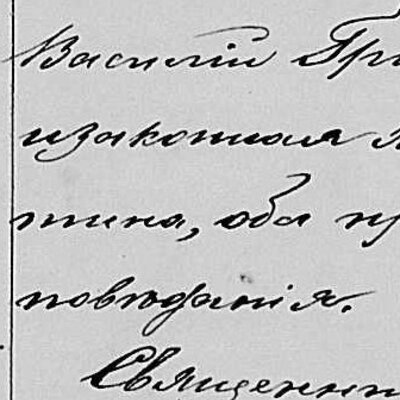 Василій Гри
и законная ж
тина, оба пр
повѣданія.
Священни